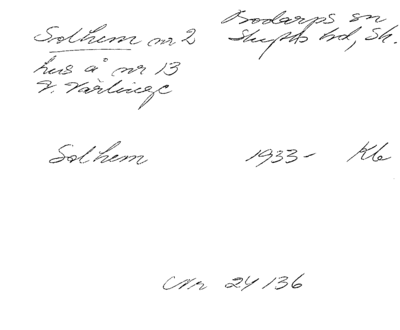 Solhem nr 2
Bodarps sn
Skytts hd, Sk.
hus å nr 13
V. Värlinge
Solhem 1933- Kb
Nr 24136